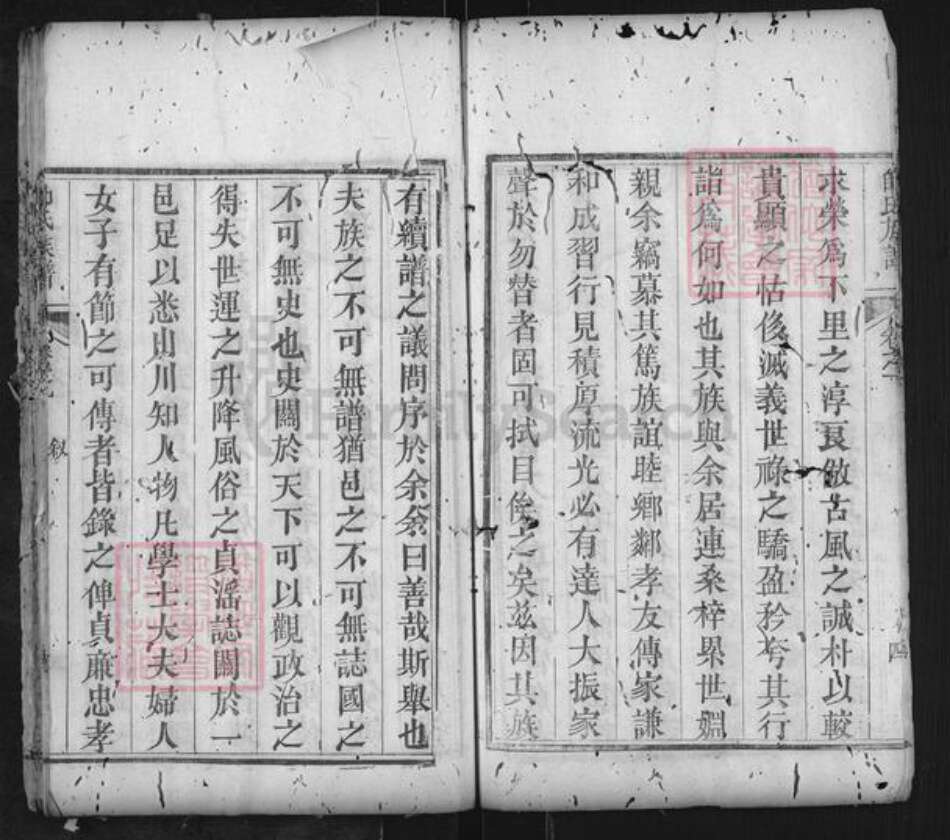 求榮爲下里之淳衷倣古風之誠朴以較
貴顯之怙侈滅義世祿之驕盈矜夸其行
詣爲何如也其族與余居連桑梓累世婣
親余竊慕其篤族誼睦鄉鄰孝友傳家謙
和成習行見積厚流光必有達人大振家
聲於勿替者固可拭目俟之矣茲因其族
有續譜之議問序於余余曰善哉斯舉也
夫族之不可無譜猶邑之不可無誌國之
不可無史也史關於天下可以觀政治之
得失世運之升降風俗之貞滛誌關於一
邑足以悉山川知人物凡學士大夫婦人
女子有節之可傳者皆錄之俾貞廉忠孝
氏族譜
叙
FamilySearch